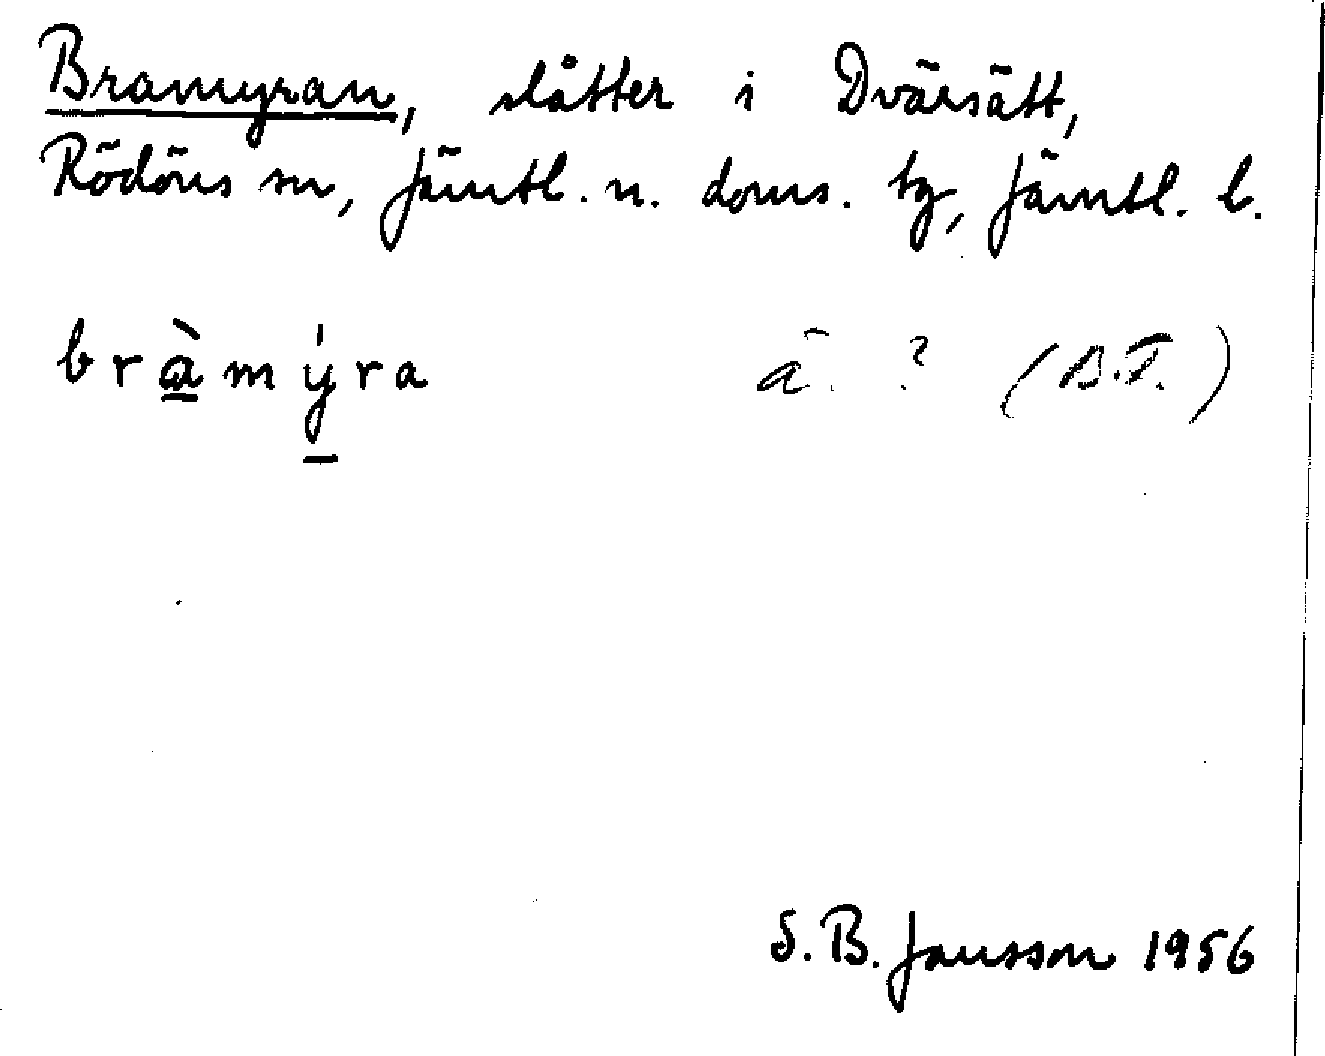 Bramyran, slåtter i Dvärsätt,
Rödöns sn, Jämtl. n. doms. tg, Jämtl. l.
bràmýra ā. ? (B.F.)
S. B. Jansson 1956